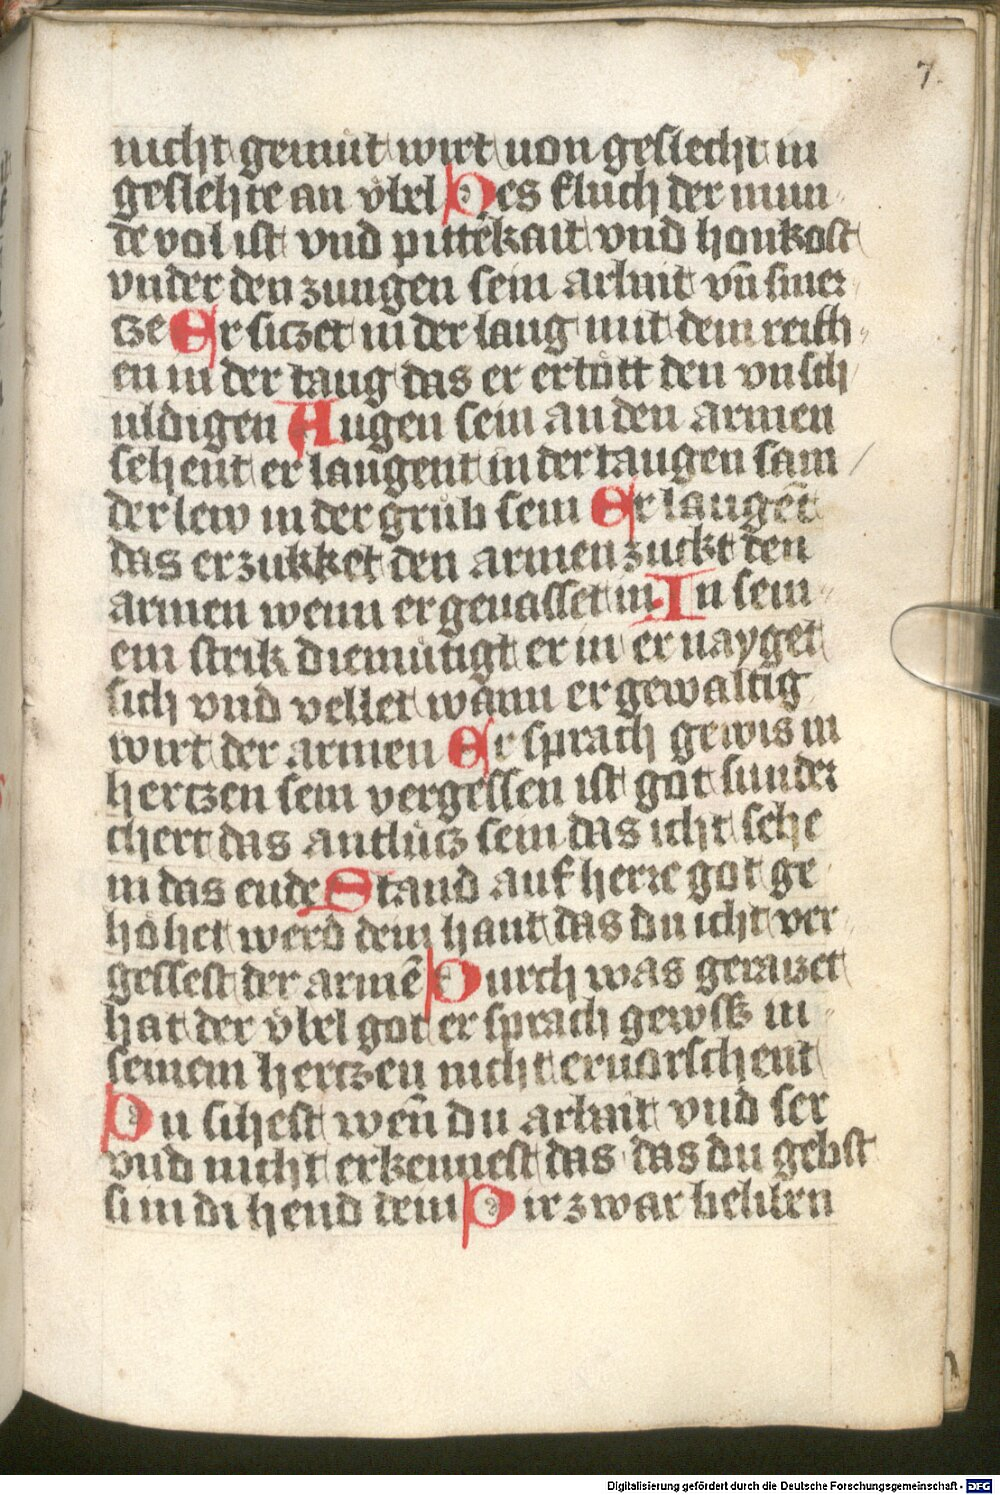 7
nicht gemuͤt wirt von geslecht in
geslehte an vͤbel Des fluch der mun
de vol ist vnd pittekait vnd honkost
vnder den zungen sein arbait vn̄ smer
tze Er siczet in der laug mit dem reich
en in der taug das er ertoͤtt den vnsch
uldigen Augen sein an den armen
sehent er laugent in der taugen sam
der lew in der gruͤb sein Er laugēt
das er zukket den armen zuckt den
armen wenn er geuasset in In sein
em strik diemuͤtigt er in er nayget
sich vnd vellet wann er gewaltig
wirt der armen Er sprach gewis in
hertzen sein vergessen ist got sunder
chert das antluͤcz sein das icht sehe
in das ende Stand auf herre got ge
hoͤhet werd dein hant das du icht ver
gessest der armē Durch was geraizet
hat der vͤbel got er sprach gewiß in
seinem hertzen nicht eruorschent
Du sihest wen̄ du arbait vnd ser
vnd nicht erkennest das das du gebst
si in di hend dein Dir zwar beliben
Digitalisierung gefördert durch die Deutsche Forschungsgemeinschaft - DFG